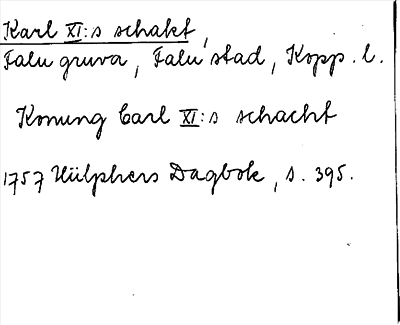 Karl XI:s schakt,
Falu gruva, Falu stad, Kopp. l.
Konung Carl XI:s schacht
1757 Hülphers Dagbok, s. 395.